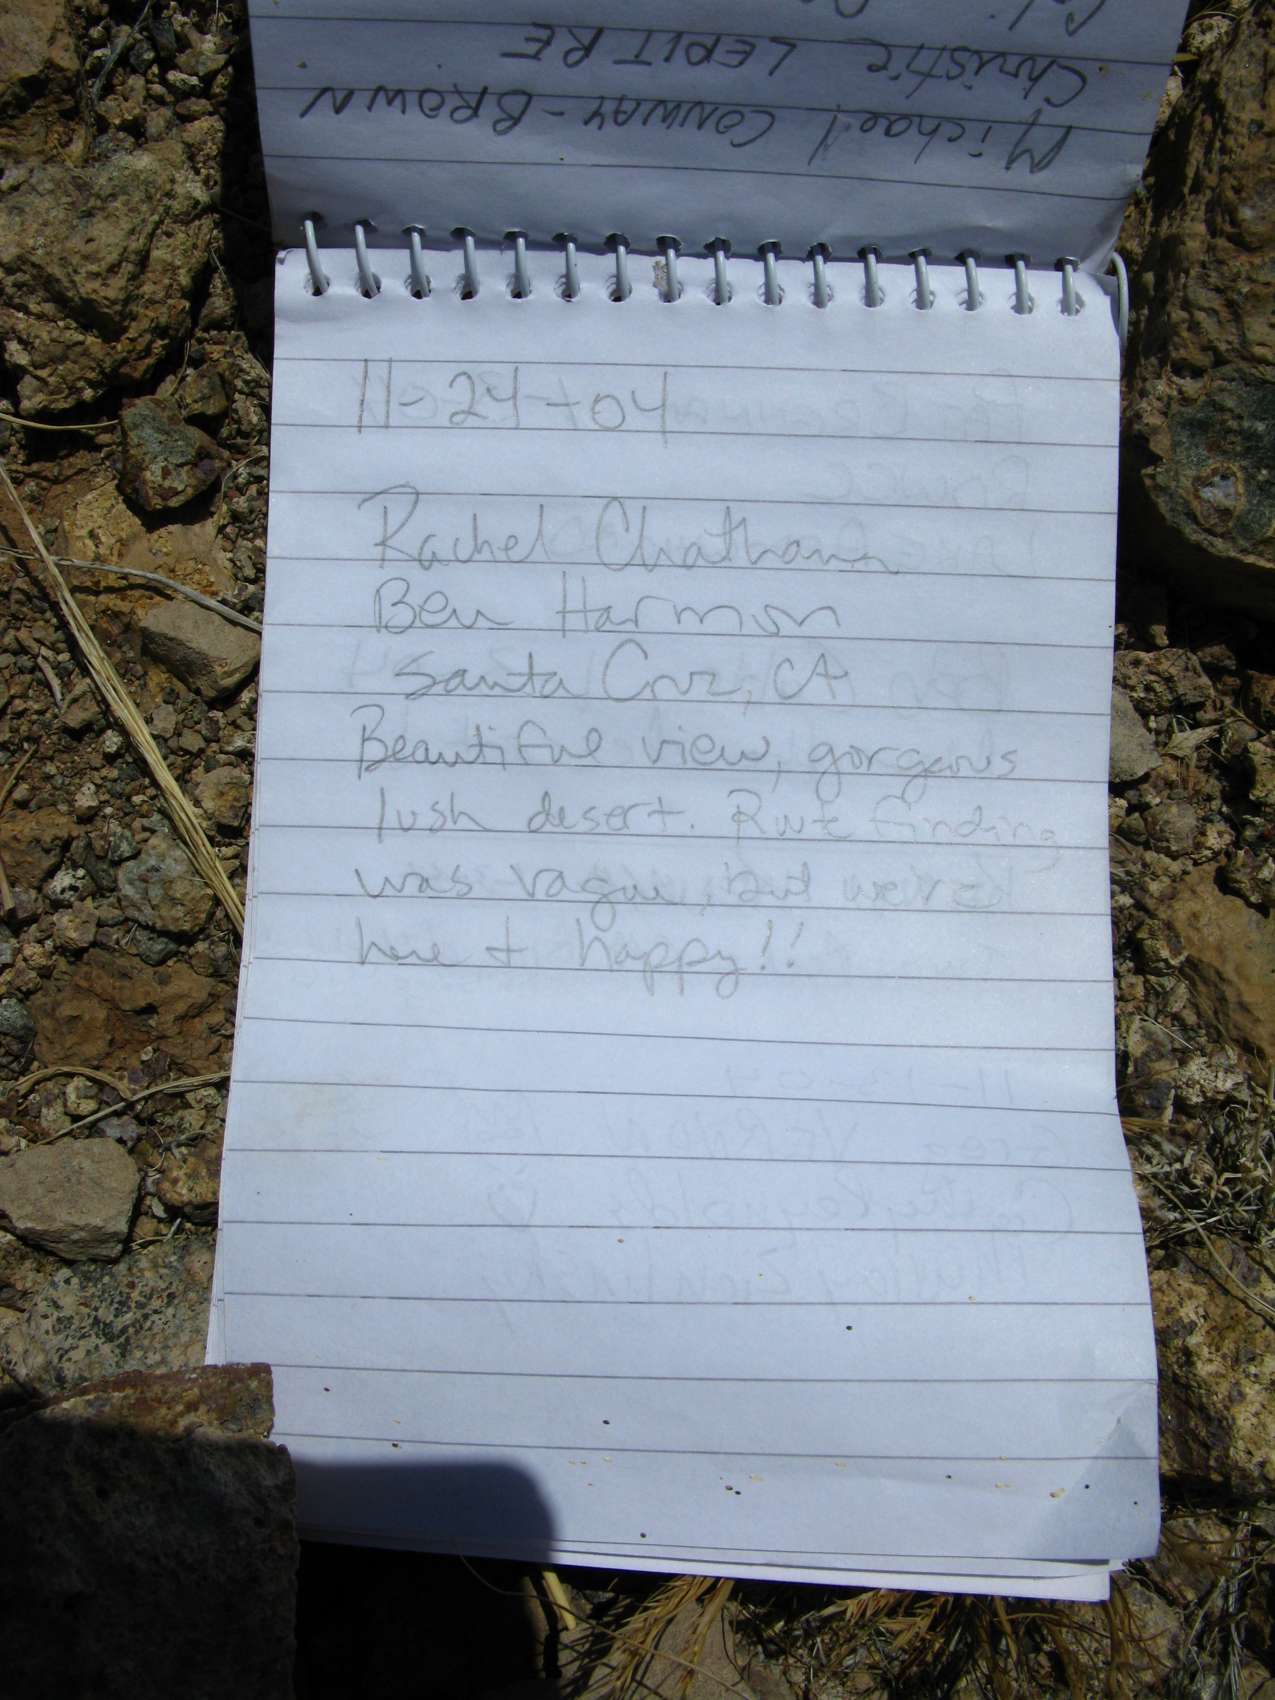 Christie LEPITRE
Michael CONWAY-BROWN
11-24-04
Rachel Chatham
Ben Harmon
Santa Cruz, CA
Beautiful view, gorgeous
lush desert. Route finding
was vague, but we're
here + happy!!